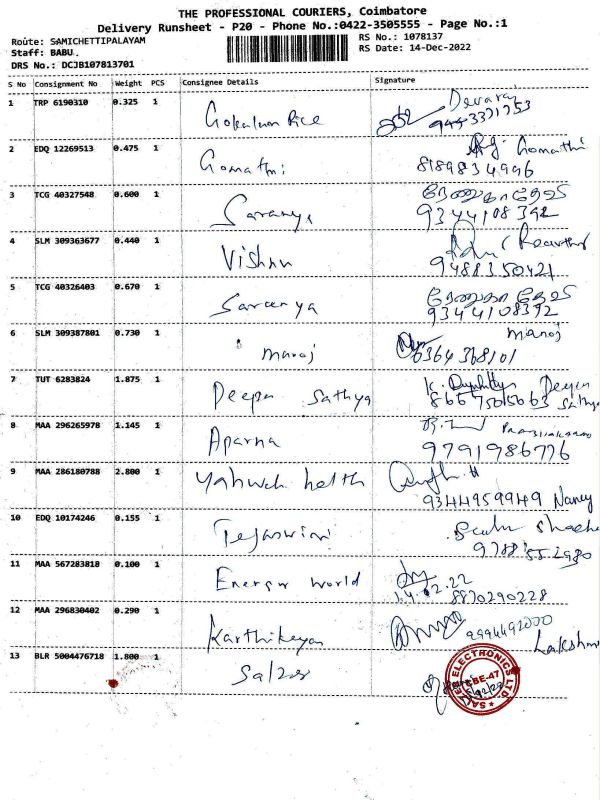 THE PROFESSIONAL COURIERS, Coimbatore
Delivery Runsheet - P20 - Phone No.:0422-3505555 - Page No.:1
Route: SAMICHETTIPALAYAM
RS No.: 1078137
Staff: BABU.
RS Date: 14-Dec-2022
DRS No.: DCJB107813701
S No Consignment No Weight PCS Consignee Details Signature
1 TRP 6190310 0.325 1 Gokulam Rice Devaraj
9443371753
2 EDQ 12269513 0.475 1 Gomathi Gomathi
8189834996
3 TCG 40327548 0.600 1 Saranya ரேணுகாதேவி
9344108392
4 SLM 309363677 0.440 1 Vishnu
9488350421
5 TCG 40326403 0.670 1 Saranya ரேணுகாதேவி
9344108392
6 SLM 309387801 0.730 1 manoj manoj
6364368101
7 TUT 6283824 1.875 1 Deepa Sathya K. Deepa
Sathya
8 MAA 296265978 1.145 1 Aparna
9791986776
9 MAA 286180788 2.800 1 Yahweh health
9344959949 Nancy
10 EDQ 10174246 0.155 1 Tejaswini
9788552980
11 MAA 567283818 0.100 1 Energy World
14.02.22
8870290228
12 MAA 296830402 0.290 1 Karthikeyan 9994492000
Lakshm
13 BLR 5004476718 1.800 1 Salzer
ELECTRONICS LTD.
CBE-47